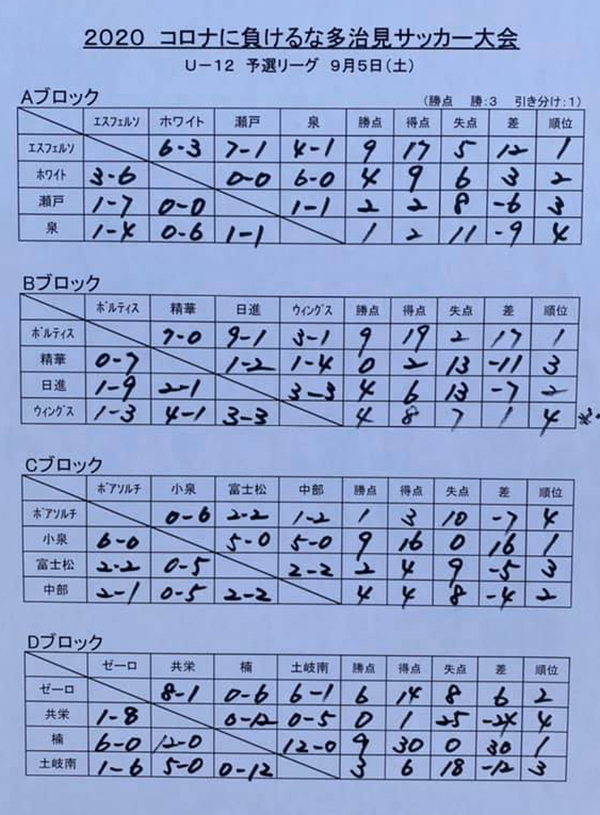 2020 コロナに負けるな多治見サッカー大会
U-12 予選リーグ 9月5日(土)
Aブロック (勝点 勝:3 引き分け:1)
エスフェルソ ホワイト 瀬戸 泉 勝点 得点 失点 差 順位
エスフェルソ 6-3 7-1 4-1 9 17 5 12 1
ホワイト 3-6 0-0 6-0 4 9 6 3 2
瀬戸 1-7 0-0 1-1 2 2 8 -6 3
泉 1-4 0-6 1-1 1 2 11 -9 4
Bブロック
ボルティス 精華 日進 ウィングス 勝点 得点 失点 差 順位
ボルティス 7-0 9-1 3-1 9 19 2 17 1
精華 0-7 1-2 1-4 0 2 13 -11 3
日進 1-9 2-1 3-3 4 6 13 -7 2
ウィングス 1-3 4-1 3-3 4 8 7 1 4
Cブロック
ボアソルチ 小泉 富士松 中部 勝点 得点 失点 差 順位
ボアソルチ 0-6 2-2 1-2 1 3 10 -7 4
小泉 6-0 5-0 5-0 9 16 0 16 1
富士松 2-2 0-5 2-2 2 4 9 -5 3
中部 2-1 0-5 2-2 4 4 8 -4 2
Dブロック
ゼーロ 共栄 楠 土岐南 勝点 得点 失点 差 順位
ゼーロ 8-1 0-6 6-1 6 14 8 6 2
共栄 1-8 0-12 0-5 0 1 25 -24 4
楠 6-0 12-0 12-0 9 30 0 30 1
土岐南 1-6 5-0 0-12 3 6 18 -12 3